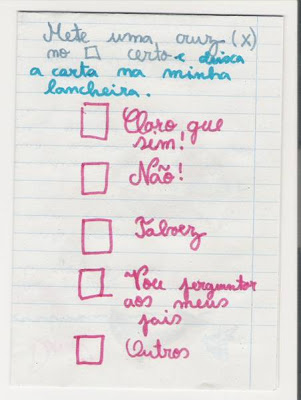 Mete uma cruz (X)
no □ certo e deixa
a carta na minha
lancheira.
□ Claro que
sim!
□ Não!
□ Talvez
□ Vou perguntar
aos meus
pais
□ Outros